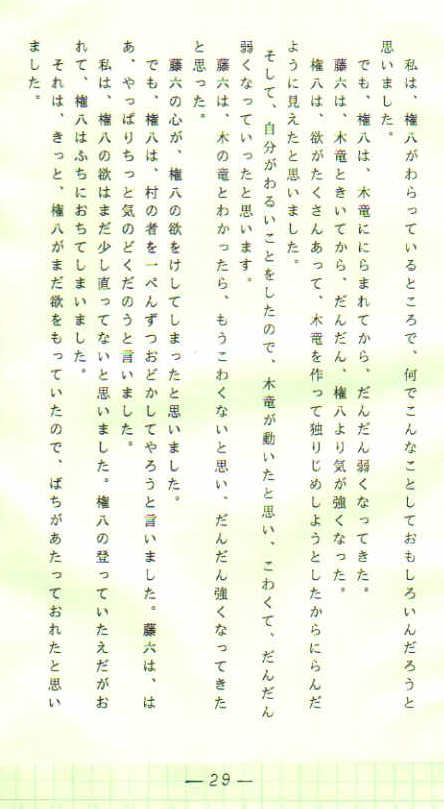 私は、権八がわらっているところで、何でこんなことしておもしろいんだろうと
思いました。
でも、権八は、木竜ににらまれてから、だんだん弱くなってきた。
藤六は、木竜ときいてから、だんだん、権八より気が強くなった。
権八は、欲がたくさんあって、木竜を作って独りじめしようとしたからにらんだ
ように見えたと思いました。
そして、自分がわるいことをしたので、木竜が動いたと思い、こわくて、だんだん
弱くなっていったと思います。
藤六は、木の竜とわかったら、もうこわくないと思い、だんだん強くなってきた
と思った。
藤六の心が、権八の欲をけしてしまったと思いました。
でも、権八は、村の者を一ぺんずつおどかしてやろうと言いました。藤六は、は
あ、やっぱりちっと気のどくだのうと言いました。
私は、権八の欲はまだ少し直ってないと思いました。権八の登っていたえだがお
れて、権八はふちにおちてしまいました。
それは、きっと、権八がまだ欲をもっていたので、ばちがあたっておれたと思い
ました。
—29—